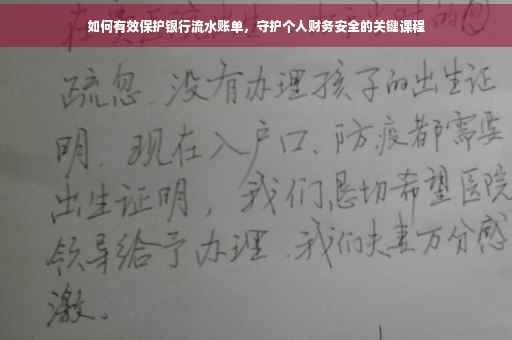 如何有效保护银行流水账单，守护个人财务安全的关键课程
疏忽、没有办理孩子的出生证
明、现在入户口、防疫都需要
出生证明，我们恳切希望医院
领导给予办理、我们夫妻万分感
激。